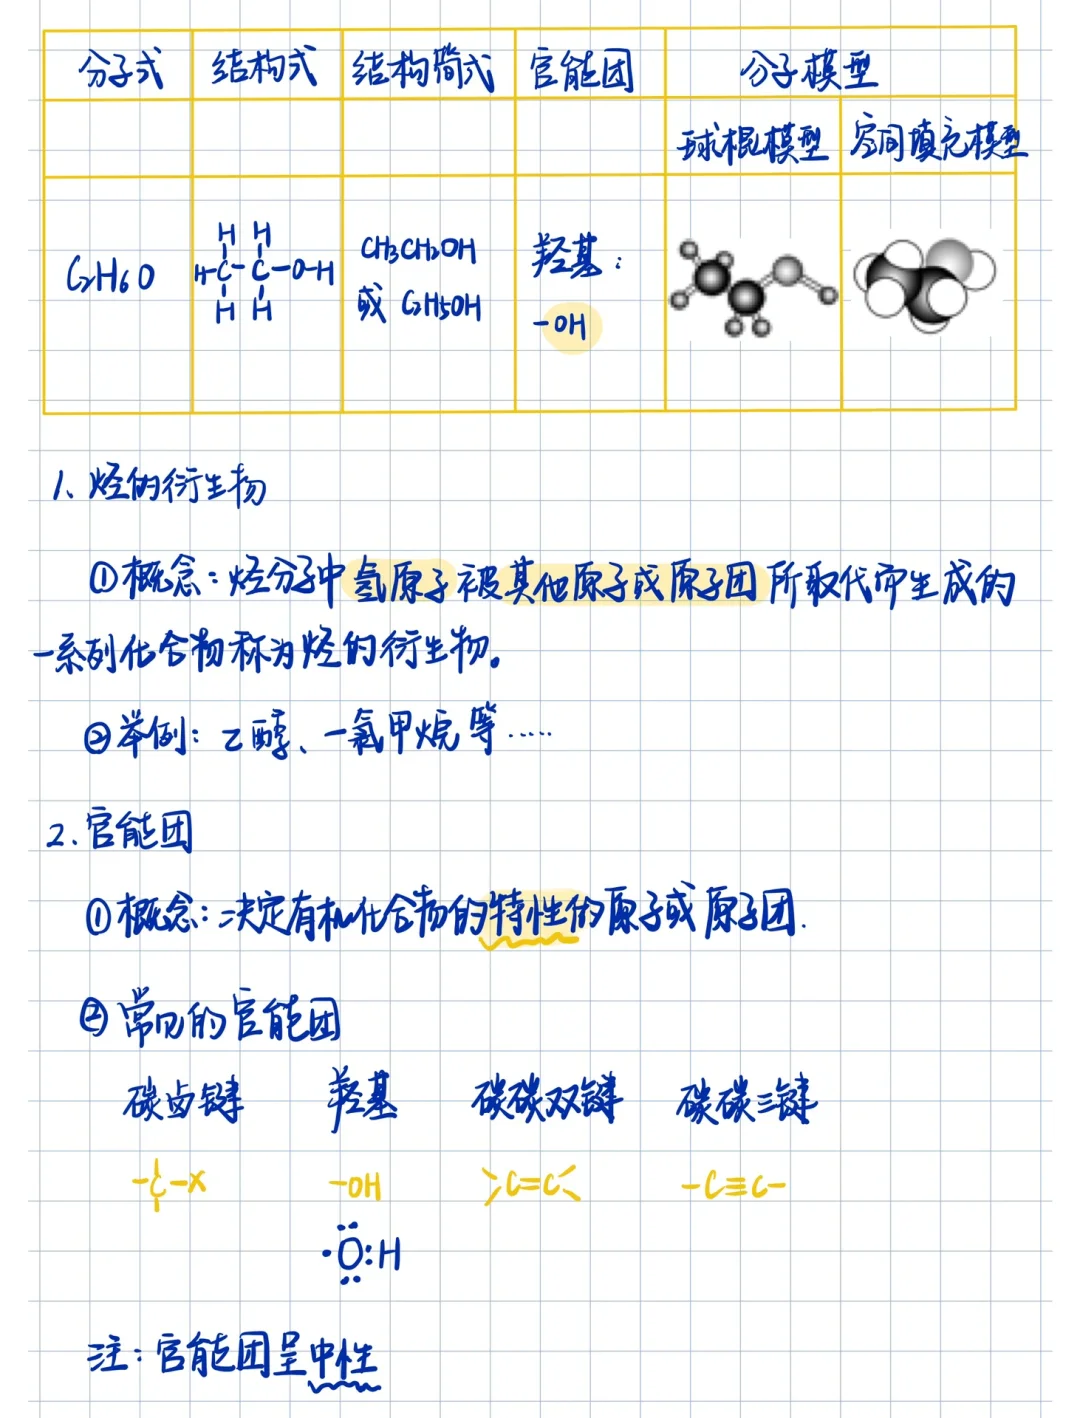 分子式 结构式 结构简式 官能团 分子模型
球棍模型 空间填充模型
C2H6O
H H
H-C-C-O-H
H H
CH3CH2OH
或 C2H5OH
羟基:
-OH
1、烃的衍生物
①概念:烃分子中氢原子被其他原子或原子团所取代而生成的
一系列化合物称为烃的衍生物。
②举例:乙醇、一氯甲烷等……
2.官能团
①概念:决定有机化合物的特性的原子或原子团.
②常见的官能团
碳卤键 羟基 碳碳双键 碳碳三键
-C-X -OH >C=C< -C≡C-
·O:H
注:官能团呈中性